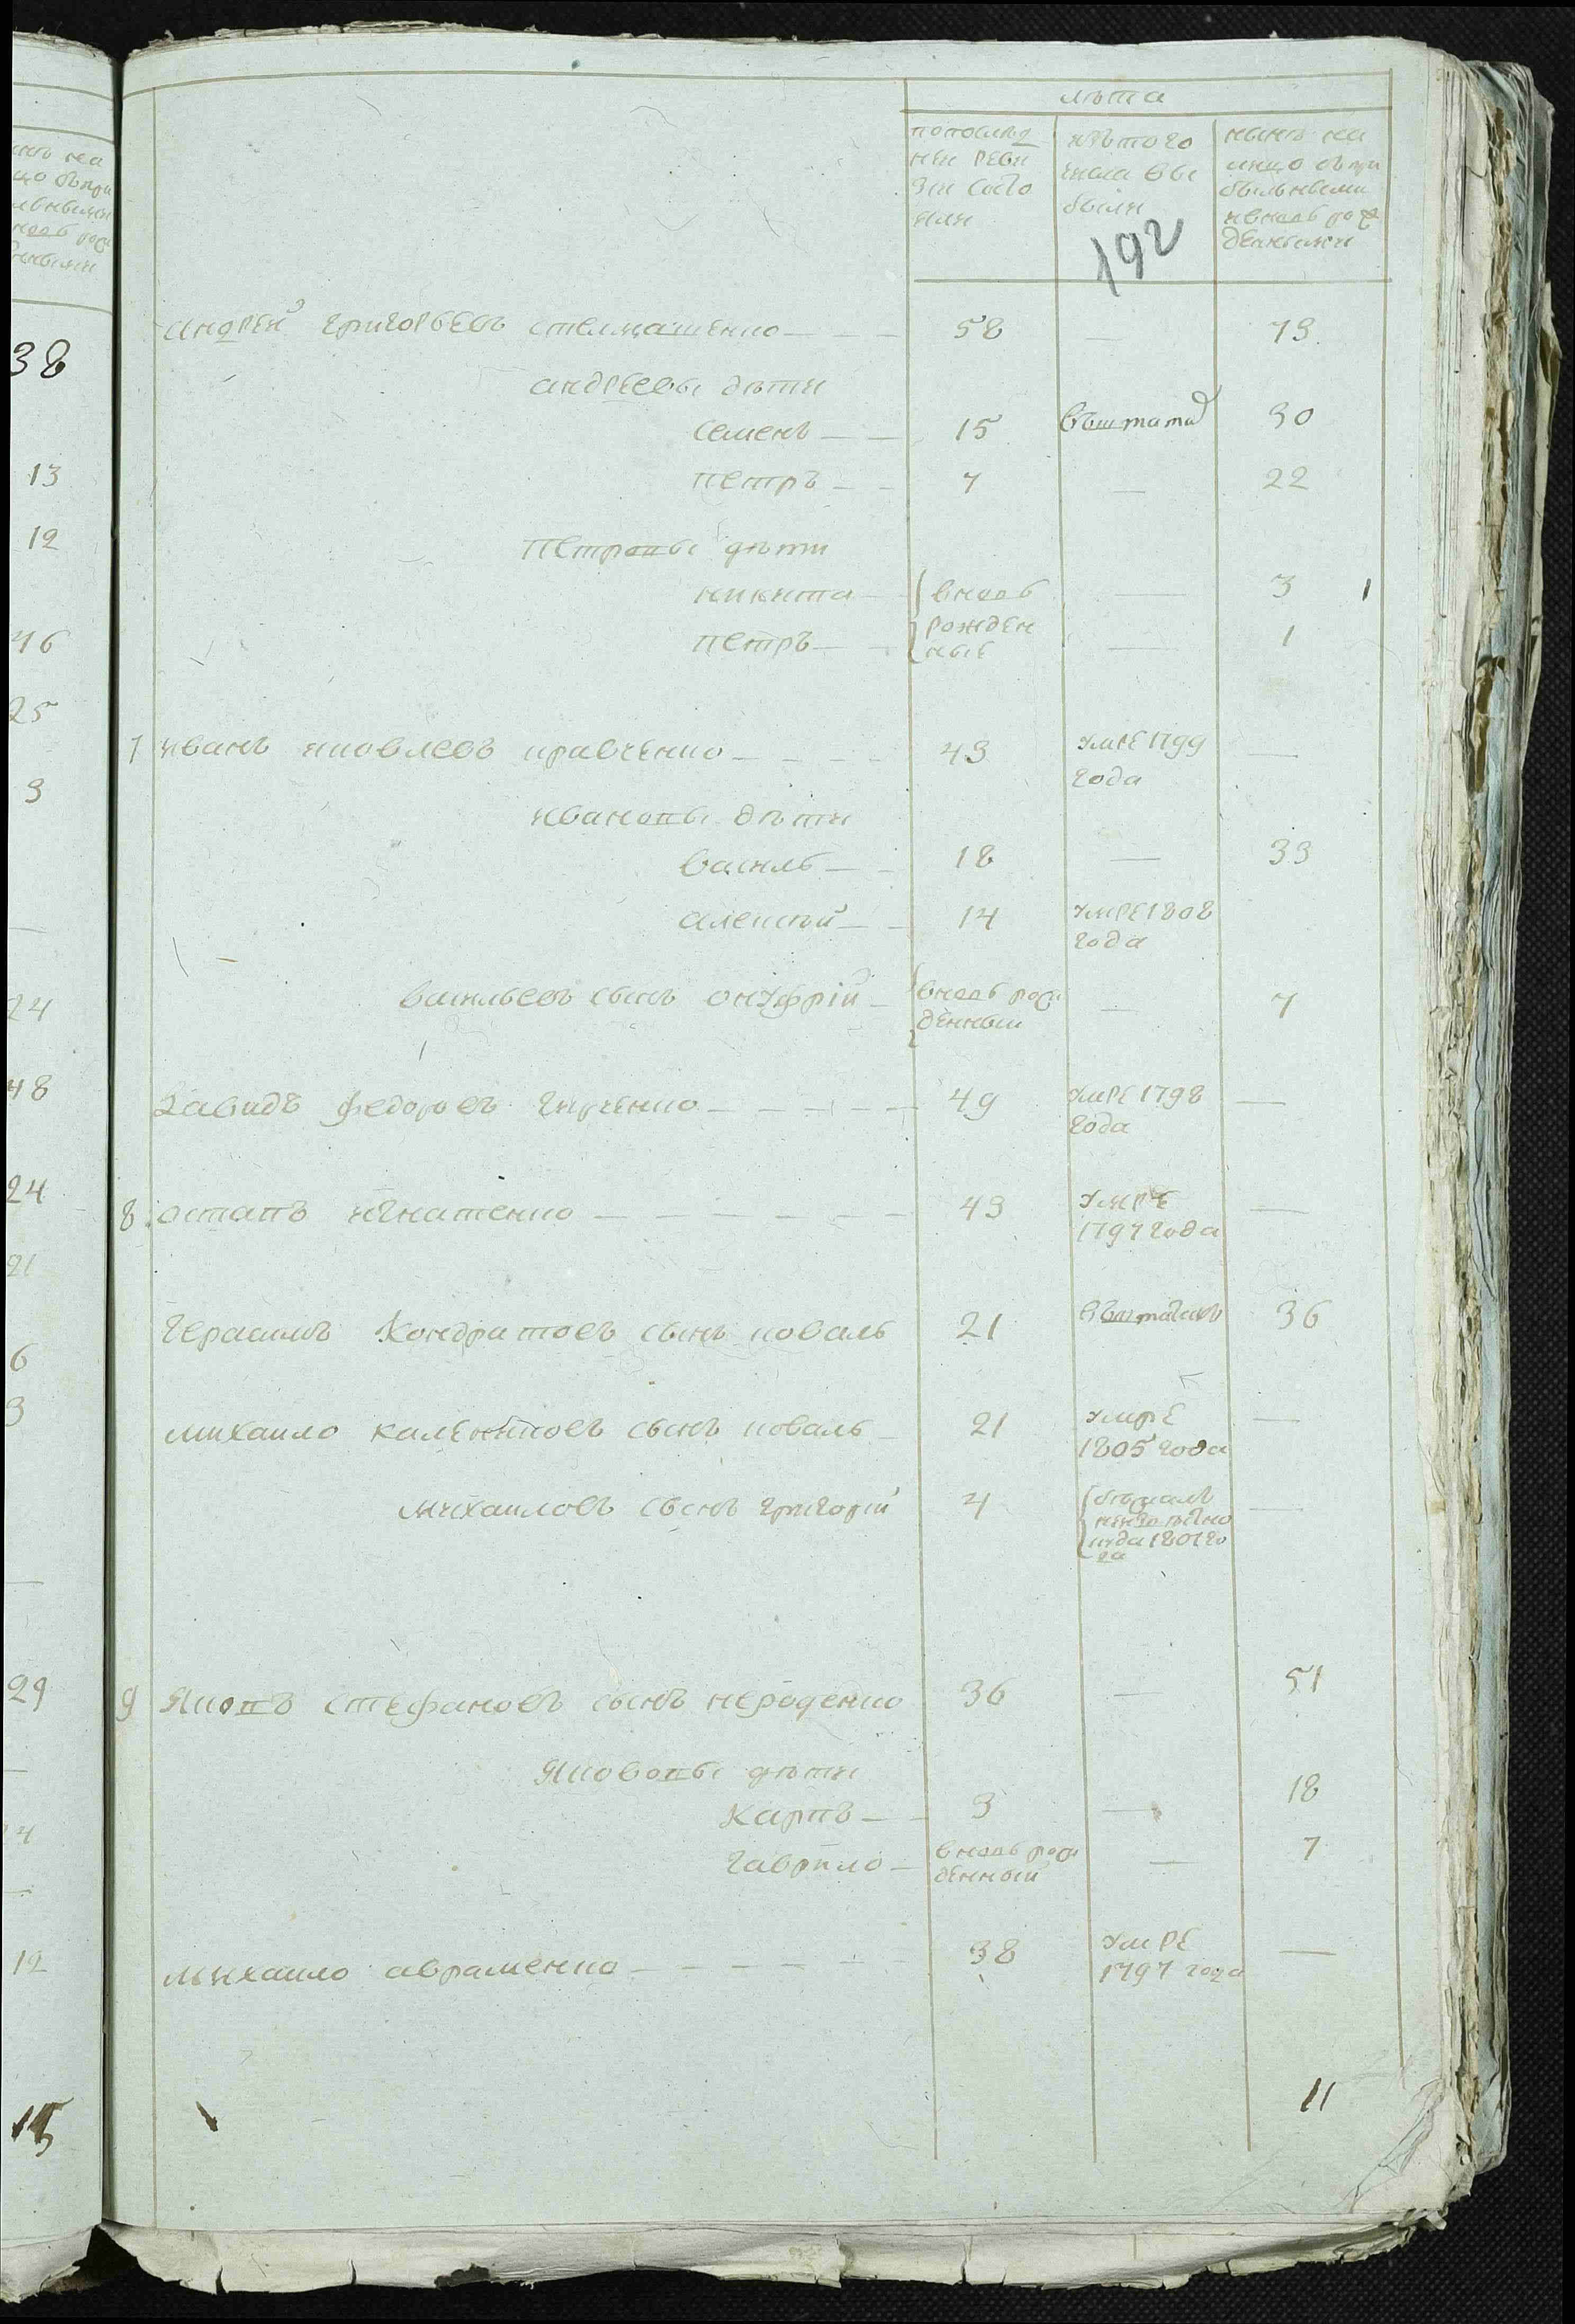 лѣта
по послѣд
ней реви
зіи состо
яли
изъ того
числа вы
были
нынѣ на
лицо съ при
быльными
и вновь рож
денными
192
Андрей Григорьевъ Стелмашенко — — — 58 — 73
Андреевы дѣти
Семенъ — — 15 30
Петръ — — 7 — 22
Петровы дѣти
Никита — вновь — 3 1
Петръ — рожден — 1
ные
7 Иванъ Яковлевъ Кравченко — — — — 43 умре 1799 —
года
Ивановы дѣти
Василь — — 18 — 33
Алексѣй — — 14 умре 1808
года
Васильевъ сынъ Онуфрій — вновь рож — 7
денный
Давидъ Федоровъ — — — — — 49 умре 1798 —
года
8 Остапъ Игнатенко — — — — — — 43 умре —
1797 года
Герасимъ Кондратовъ сынъ Коваль 21 36
Михаило сынъ Коваль — 21 умре —
1805 года
Михаиловъ сынъ Григорій 4 бѣжалъ —
куда 1801 го
да
9 Яковъ Стефановъ сынъ Нероденко 36 — 51
Якововы дѣти
Карпъ — — 3 — 18
Гаврило — вновь рож — 7
денный
Михаило Авраменко — — — — — — 38 умре —
1797 года
11
38
13
12
46
25
3
24
48
24
21
6
3
29
12
15